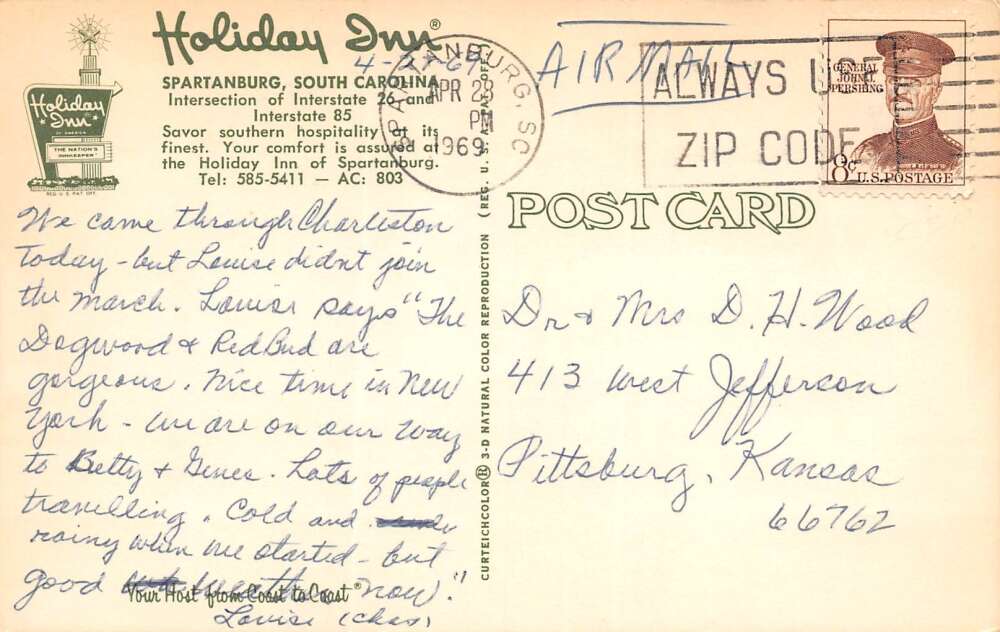 Holiday Inn®
SPARTANBURG, SOUTH CAROLINA
Intersection of Interstate 26 and
Interstate 85
Savor southern hospitality at its
finest. Your comfort is assured at
the Holiday Inn of Spartanburg.
Tel: 585-5411 — AC: 803
Holiday
Inn
OF AMERICA
THE NATION'S
INNKEEPER
REG. U.S. PAT. OFF.
We came through Charleston
Today - but Louise didnt join
the march. Louise says "The
Dogwood & RedBud are
gorgeous. Nice time in New
York - we are on our way
to Betty & Genes. Lots of people
travelling. Cold and
rainy when we started - but
good weather now."
Your Host from Coast to Coast®
Louise (Chas)
CURTEICHCOLOR® 3-D NATURAL COLOR REPRODUCTION (REG. U.S.A. PAT. OFF.)
SPARTANBURG, SC
APR 28
PM
1969
AIR MAIL
ALWAYS USE
ZIP CODE
GENERAL
JOHN J.
PERSHING
8¢
U.S. POSTAGE
POST CARD
Dr & Mrs D. H. Wood
413 West Jefferson
Pittsburg, Kansas
66762